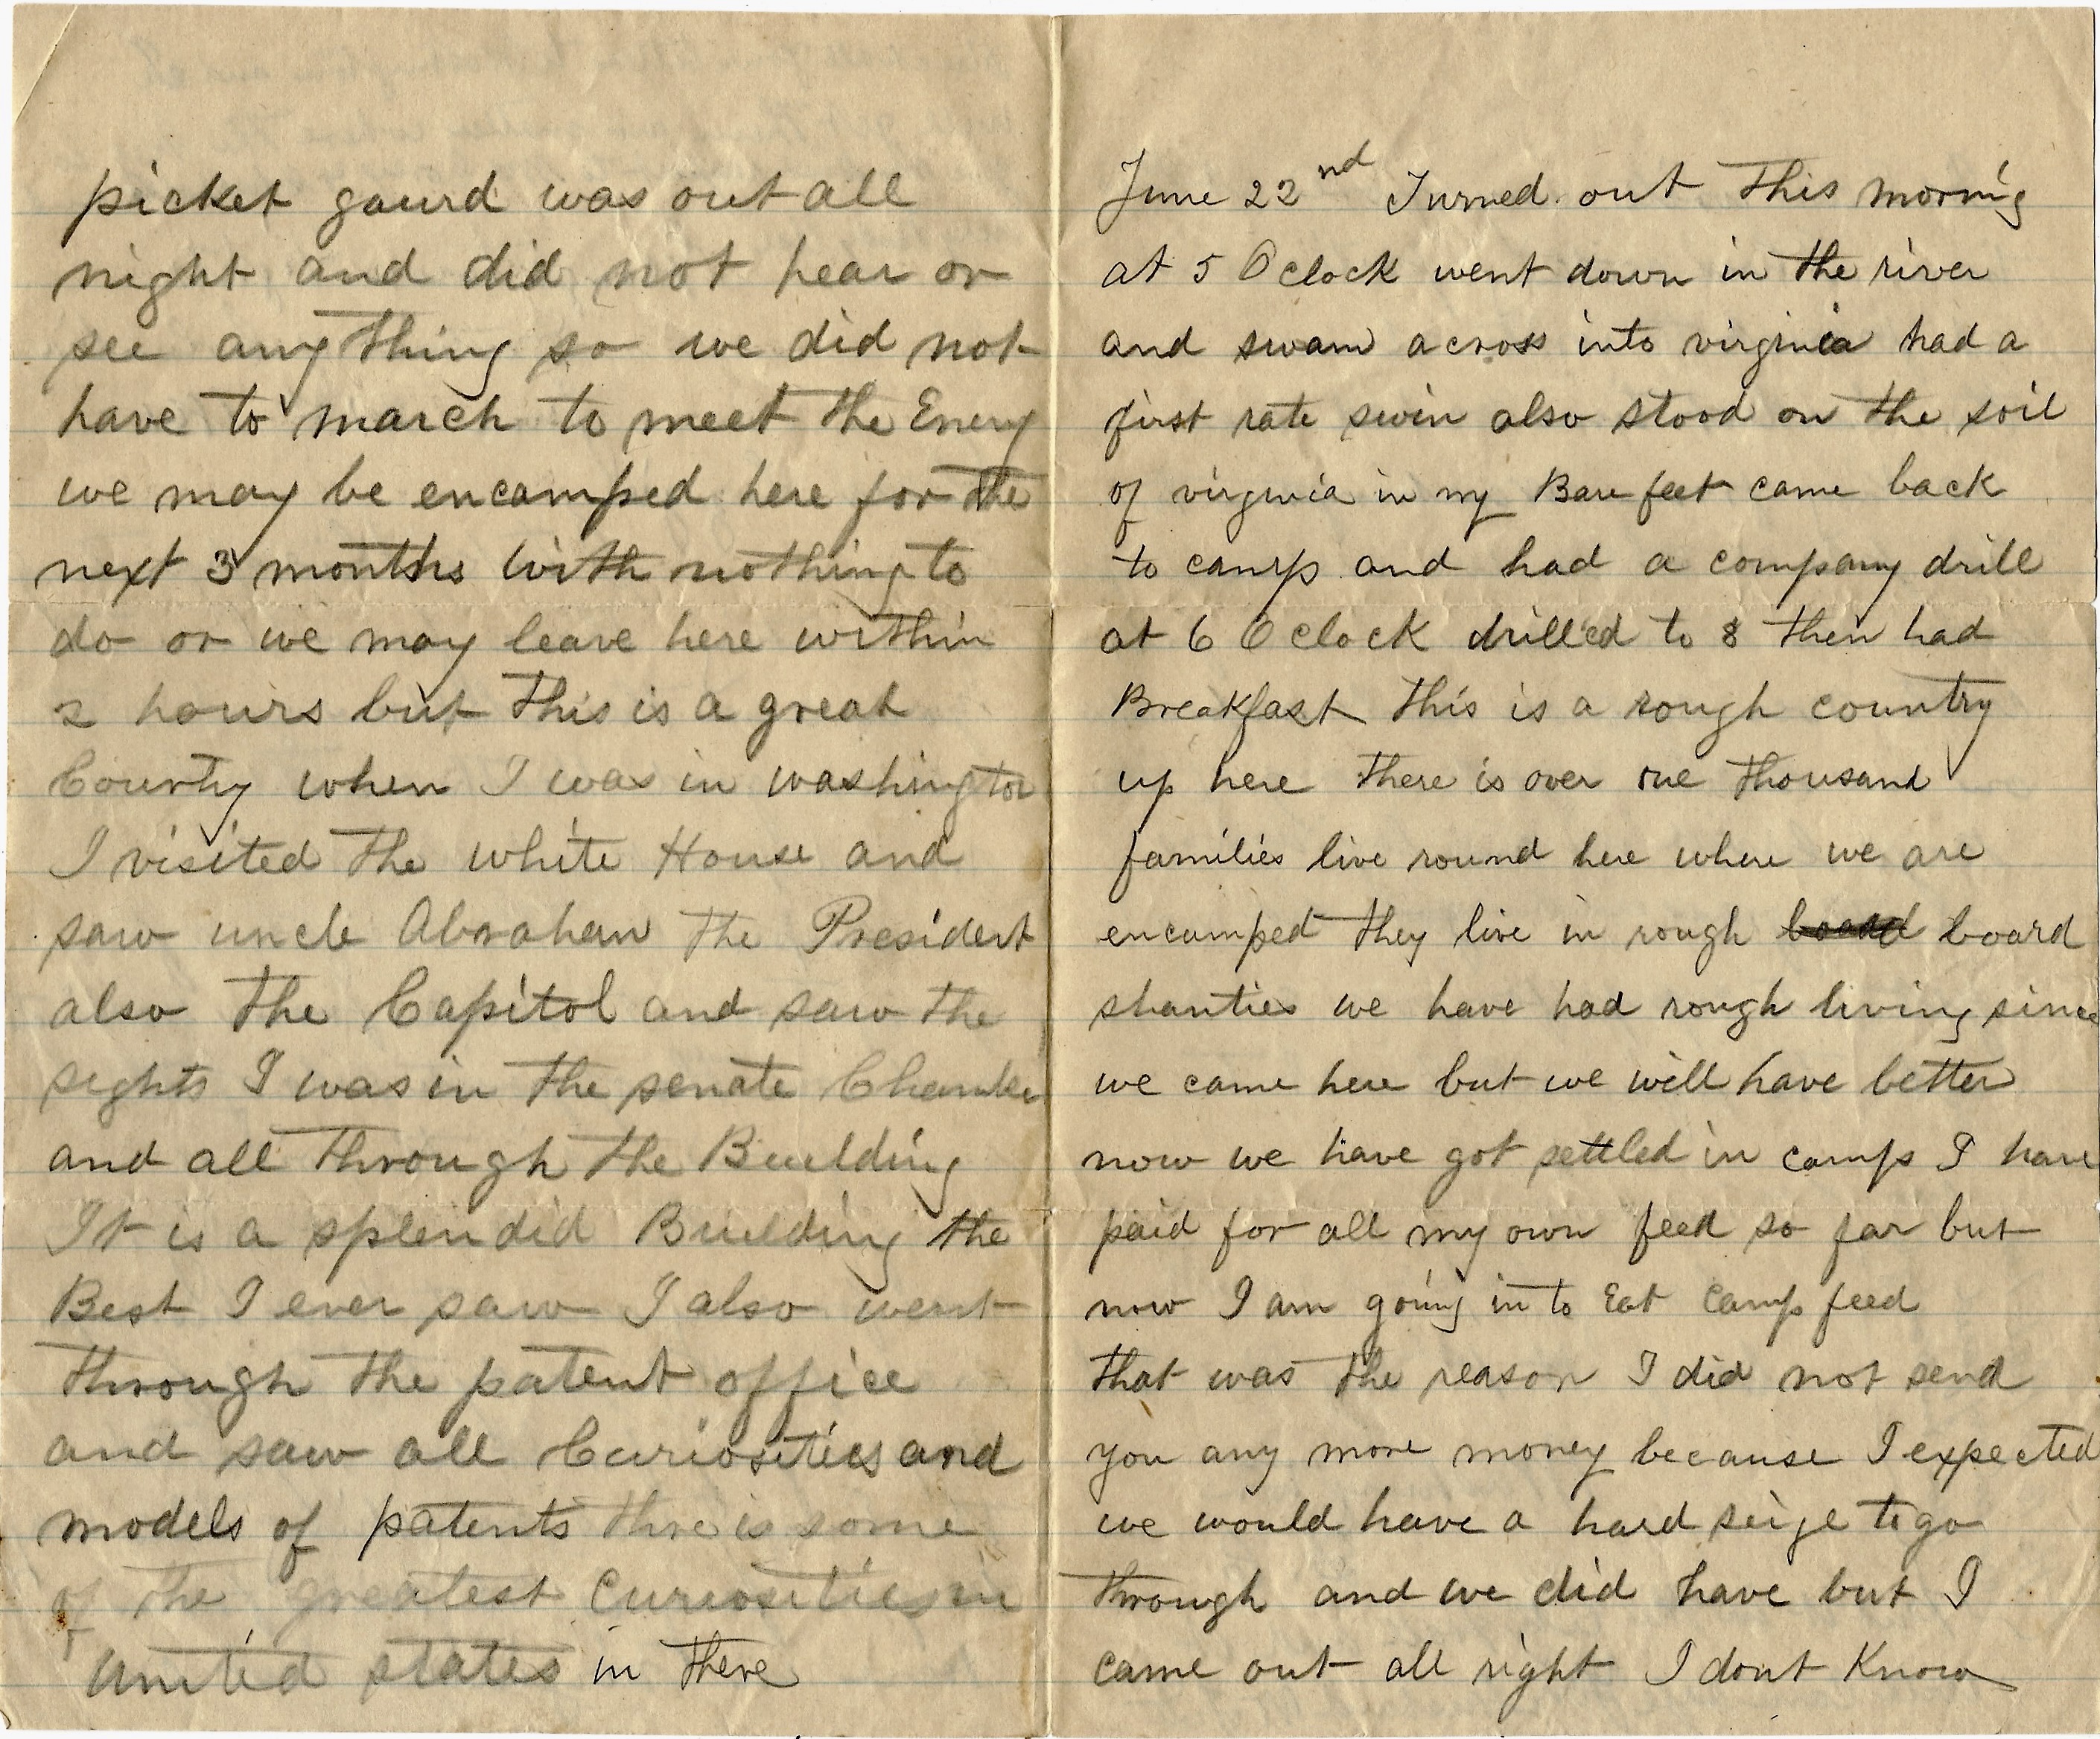 picket gaurd was out all
night and did not hear or
see any thing so we did not
have to march to meet the Enemy
we may be encamped here for the
next 3 months with nothing to
do or we may leave here within
2 hours but this is a great
Country when I was in washington
I visited the white House and
saw uncle Abraham the President
also the Capitol and saw the
sights I was in the senate Chamber
and all through the Building
It is a splendid Building the
Best I ever saw I also went
through the patent office
and saw all Curiosities and
models of patents thre is some
of the greatest Curiosities in
United states in there
June 22nd Turned out this morning
at 5 O clock went down in the river
and swam across into virginia had a
first rate swim also stood on the soil
of virginia in my Bare feet came back
to camp and had a company drill
at 6 O clock drilled to 8 then had
Breakfast this is a rough country
up here there is over one thousand
families live round here where we are
encamped they live in rough board board
shanties we have had rough living since
we came here but we will have better
now we have got settled in camp I have
paid for all my own feed so far but
now I am going in to Eat Camp feed
that was the reason I did not send
you any more money because I expected
we would have a hard seige to go
through and we did have but I
came out all right I dont Know